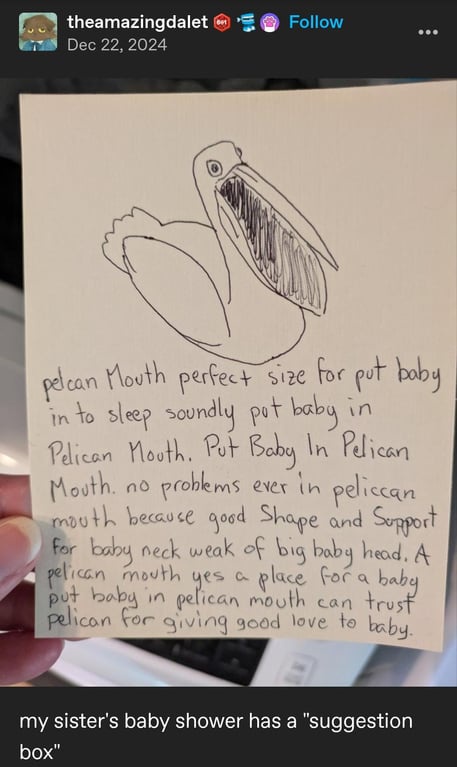 theamazingdalet Bot Follow
Dec 22, 2024
pelcan Mouth perfect size for put baby
in to sleep soundly put baby in
Pelican Mouth. Put Baby In Pelican
Mouth. no problems ever in peliccan
mouth because good Shape and Support
for baby neck weak of big baby head. A
pelican mouth yes a place for a baby
put baby in pelican mouth can trust
pelican for giving good love to baby.
my sister's baby shower has a "suggestion
box"